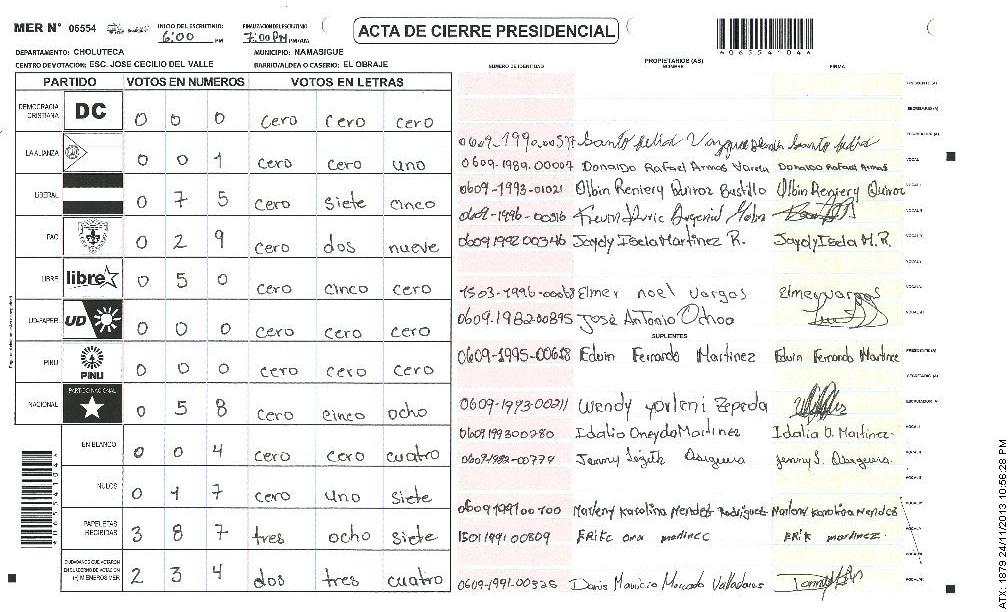 MER Nº 06554 INICIO DEL ESCRUTINIO: 6:00 PM FINALIZACION DEL ESCRUTINIO 7:00 PM PM/AM
ACTA DE CIERRE PRESIDENCIAL
*06554104*
DEPARTAMENTO: CHOLUTECA MUNICIPIO: NAMASIGUE
CENTRO DE VOTACION: ESC. JOSE CECILIO DEL VALLE BARRIO/ALDEA O CASERIO: EL OBRAJE
PARTIDO VOTOS EN NUMEROS VOTOS EN LETRAS
DEMOCRACIA CRISTIANA DC 0 0 0 cero cero cero
LA ALIANZA 0 0 1 cero cero uno
LIBERAL 0 7 5 cero siete cinco
PAC 0 2 9 cero dos nueve
LIBRE libre 0 5 0 cero cinco cero
UD-FAPER UD 0 0 0 cero cero cero
PINU PINU 0 0 0 cero cero cero
NACIONAL PARTIDO NACIONAL 0 5 8 cero cinco ocho
EN BLANCO 0 0 4 cero cero cuatro
NULOS 0 1 7 cero uno siete
PAPELETAS RECIBIDAS 3 8 7 tres ocho siete
CIUDADANOS QUE VOTARON EN CUADERNO DE VOTACION (+) MIEMBROS MER 2 3 4 dos tres cuatro
PROPIETARIOS (AS)
NUMERO DE IDENTIDAD NOMBRE FIRMA
PRESIDENTE (A)
SECRETARIO (A)
Santo felix ESCRUTADOR (A)
0609-1989-00007 Donaldo Rafael Armas Varela Donaldo Rafael Armas VOCAL
0609-1993-01021 Olbin Reniery Quiroz Bustillo Olbin Reniery Quiroz
0609-1996-00316
0609199200346 Jaydy Isela Martinez R. Jaydy Isela M.R.
1503-1996-00068 Elmer noel vargas Elmer vargas
0609-1982-00895 José Antonio Ochoa
SUPLENTES
0609-1995-00618 Edwin Fernando Martinez Edwin Fernando Martinez PRESIDENTE (A)
SECRETARIO (A)
0609-1993-00211 Wendy yorleni Zepeda ESCRUTADOR (A)
0609199300280 Idalia Oneyda Martinez Idalia O. Martinez.
0609-1982-00774 Jenny Jenny S.
0609199100700 Marleny Karolina Mendez Rodriguez Marleny Karolina Mendez
1501199100809 Erika ana martinez Erik martinez
0609-1991-00326 Denis Mauricio Mercado Valladares
*06554104*
ATX: 1879 24/11/2013 10:56:28 PM